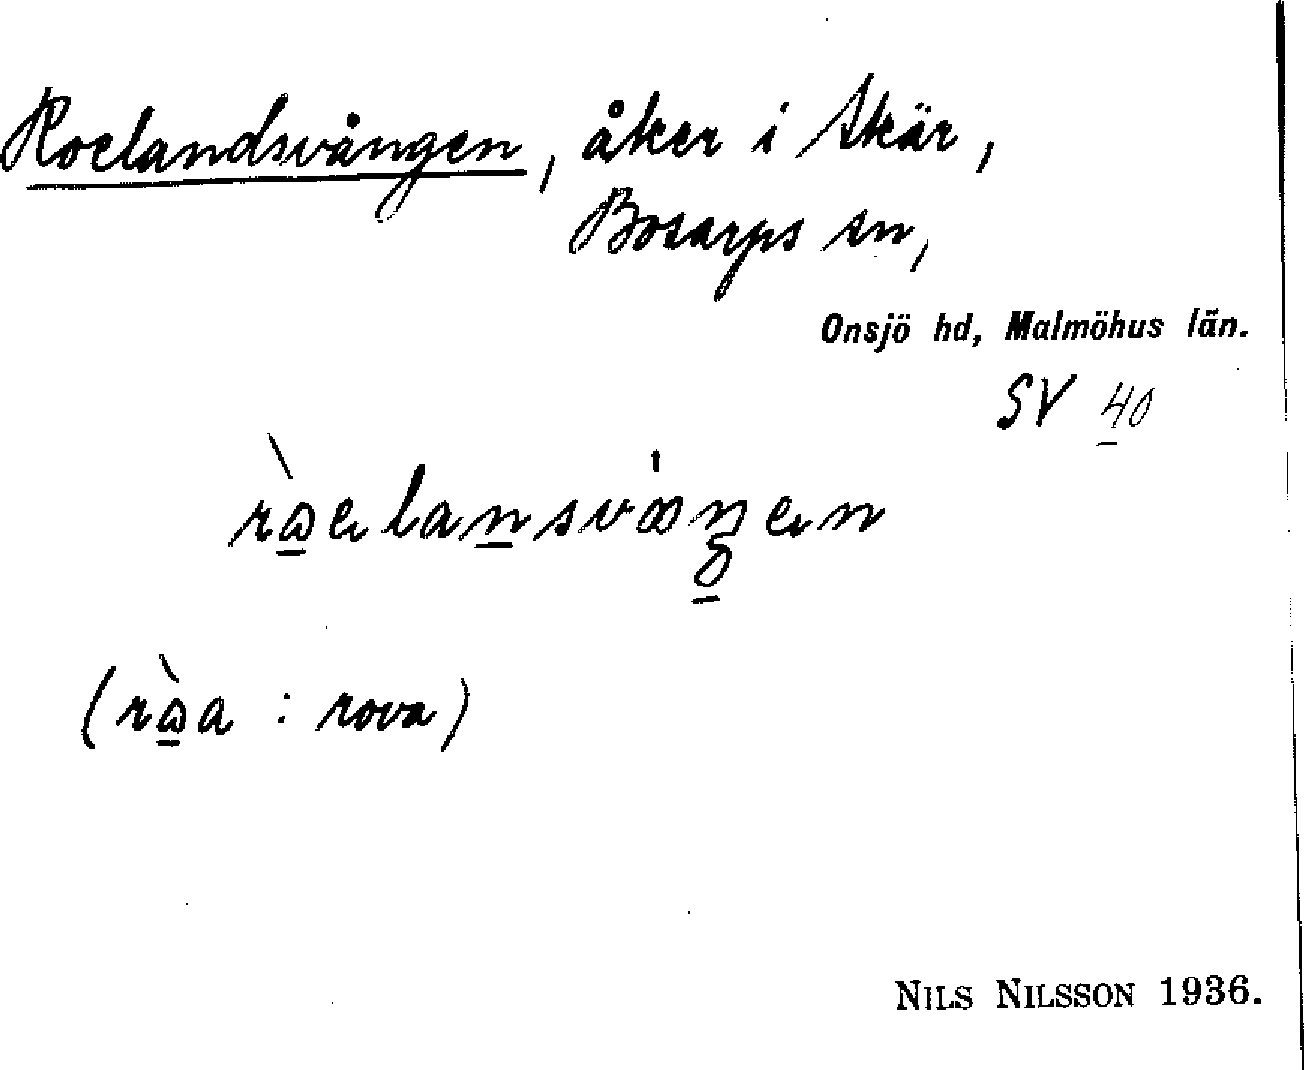 Roelandsvången, åker i Skär,
Bosarps sn,
Onsjö hd, Malmöhus län.
SV 40
(ròa : rova)
NILS NILSSON 1936.